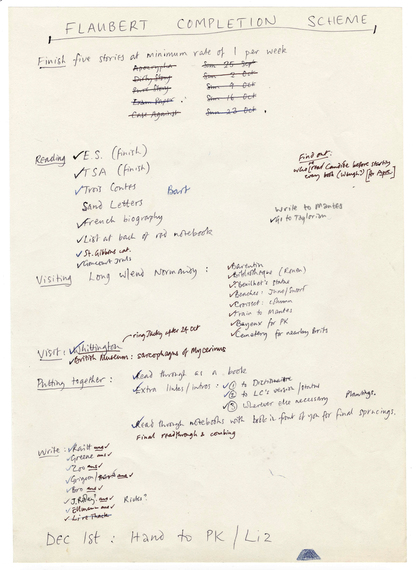 FLAUBERT COMPLETION SCHEME
Finish five stories at minimum rate of 1 per week
Apocrypha Sun 25 Sept
Dirty Story Sun 2 Oct
Sun 9 Oct
Exam Paper Sun 16 Oct
Case Against Sun 23 Oct
Reading ✓E.S. (finish)
✓TSA (finish)
✓Trois Contes Bart
Sand Letters
✓French biography
✓List at back of red notebook
✓St. Gibbons cat.
✓Goncourt Jrnls
Find out:
who read Candide before starting
every book (Waugh?)
Write to Mantes
✓Go to Taylorian
Visiting Long w/end Normandy :
✓Barentin
✓Bibliothèque (Rouen)
✓Bouilhet's statue
✓Beaches: Juno/Sword
✓Croisset: column
✓Train to Mantes
✓Bayeux for PK
✓Cemetery for nearby Brits
Visit: ✓Whittington ring Jacky after 24 Oct
✓British Museum: sarcophagus of Mycerinus
Putting together: ✓Read through as a book
Extra links/intros: ✓① to Dictionnaire
✓② to LC's version
✓③ Wherever else necessary
✓Read through notebooks with book in front of you for final sprucings.
Final readthrough & combing
Write: ✓Ravitt ans ✓
✓Greene ans ✓
✓Zoo ans ✓
✓Grigson ans ✓
✓Bro ans ✓
ans ✓ Rides?
✓Ellmann ans ✓
DEC 1st: Hand to PK/Liz